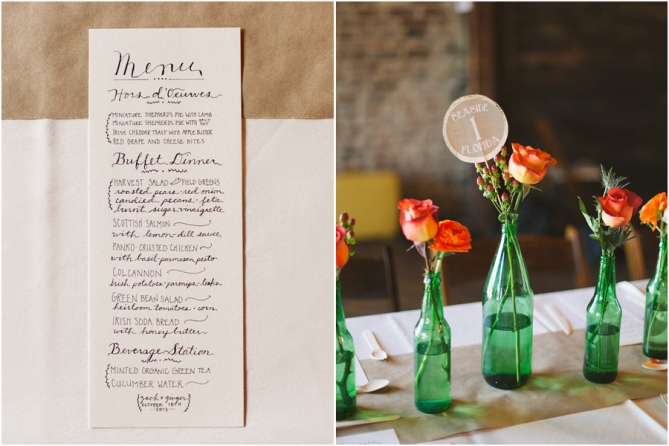 Menu
Hors d'Oeuvres
MINIATURE SHEPHERD'S PIE WITH LAMB
MINIATURE SHEPHERD'S PIE WITH
IRISH CHEDDAR TOAST WITH APPLE BUTTER
RED GRAPE AND CHEESE BITES
Buffet Dinner
HARVEST SALAD with FIELD GREENS
roasted pears · red onion
candied pecans · feta
burnt sugar vinaigrette
SCOTTISH SALMON
with lemon-dill sauce
PANKO-CRUSTED CHICKEN
with basil-parmesan pesto
COLCANNON
Irish potatoes · parsnips · leeks
GREEN BEAN SALAD
heirloom tomatoes · corn
IRISH SODA BREAD
with honey butter
Beverage Station
MINTED ORGANIC GREEN TEA
CUCUMBER WATER
zach & ginger
OCTOBER 18TH
2013
SEASIDE
1
FLORIDA